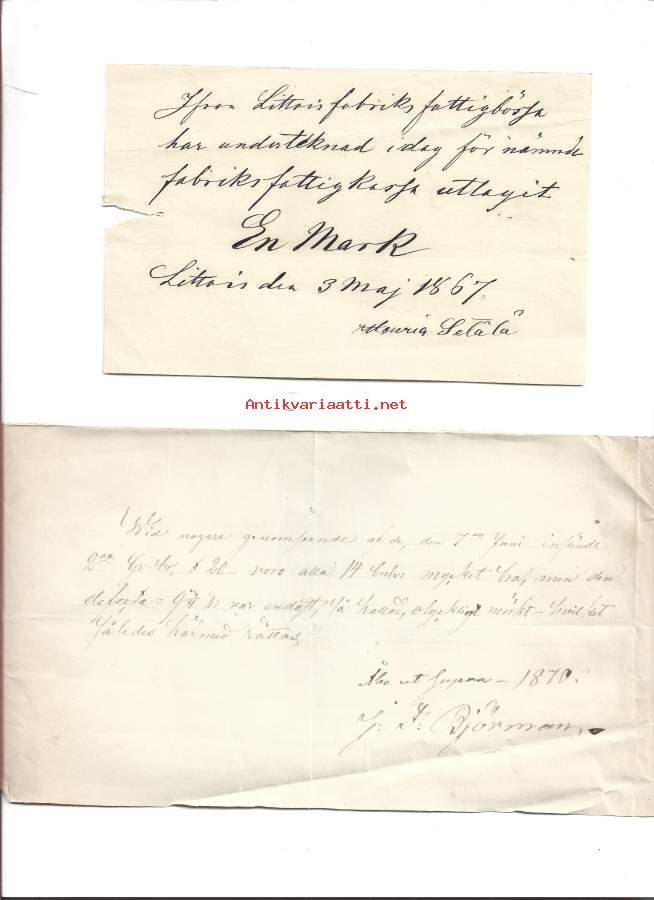 Ifrån Littois fabriks fattigbössa
har underteknad i dag för nämnde
fabriks fattigkassa uttagit
En Mark
Littois den 3 Maj 1867.
Setälä
Antikvariaatti.net
Wid nogare genomseende af de, den 7 Juni insände
20 voro alla 14 mycket bra, men den
var endast, så kallad, mörkt hvilket
således härmed rättas
Åbo ut Supra - 1870.
J. F. Björman